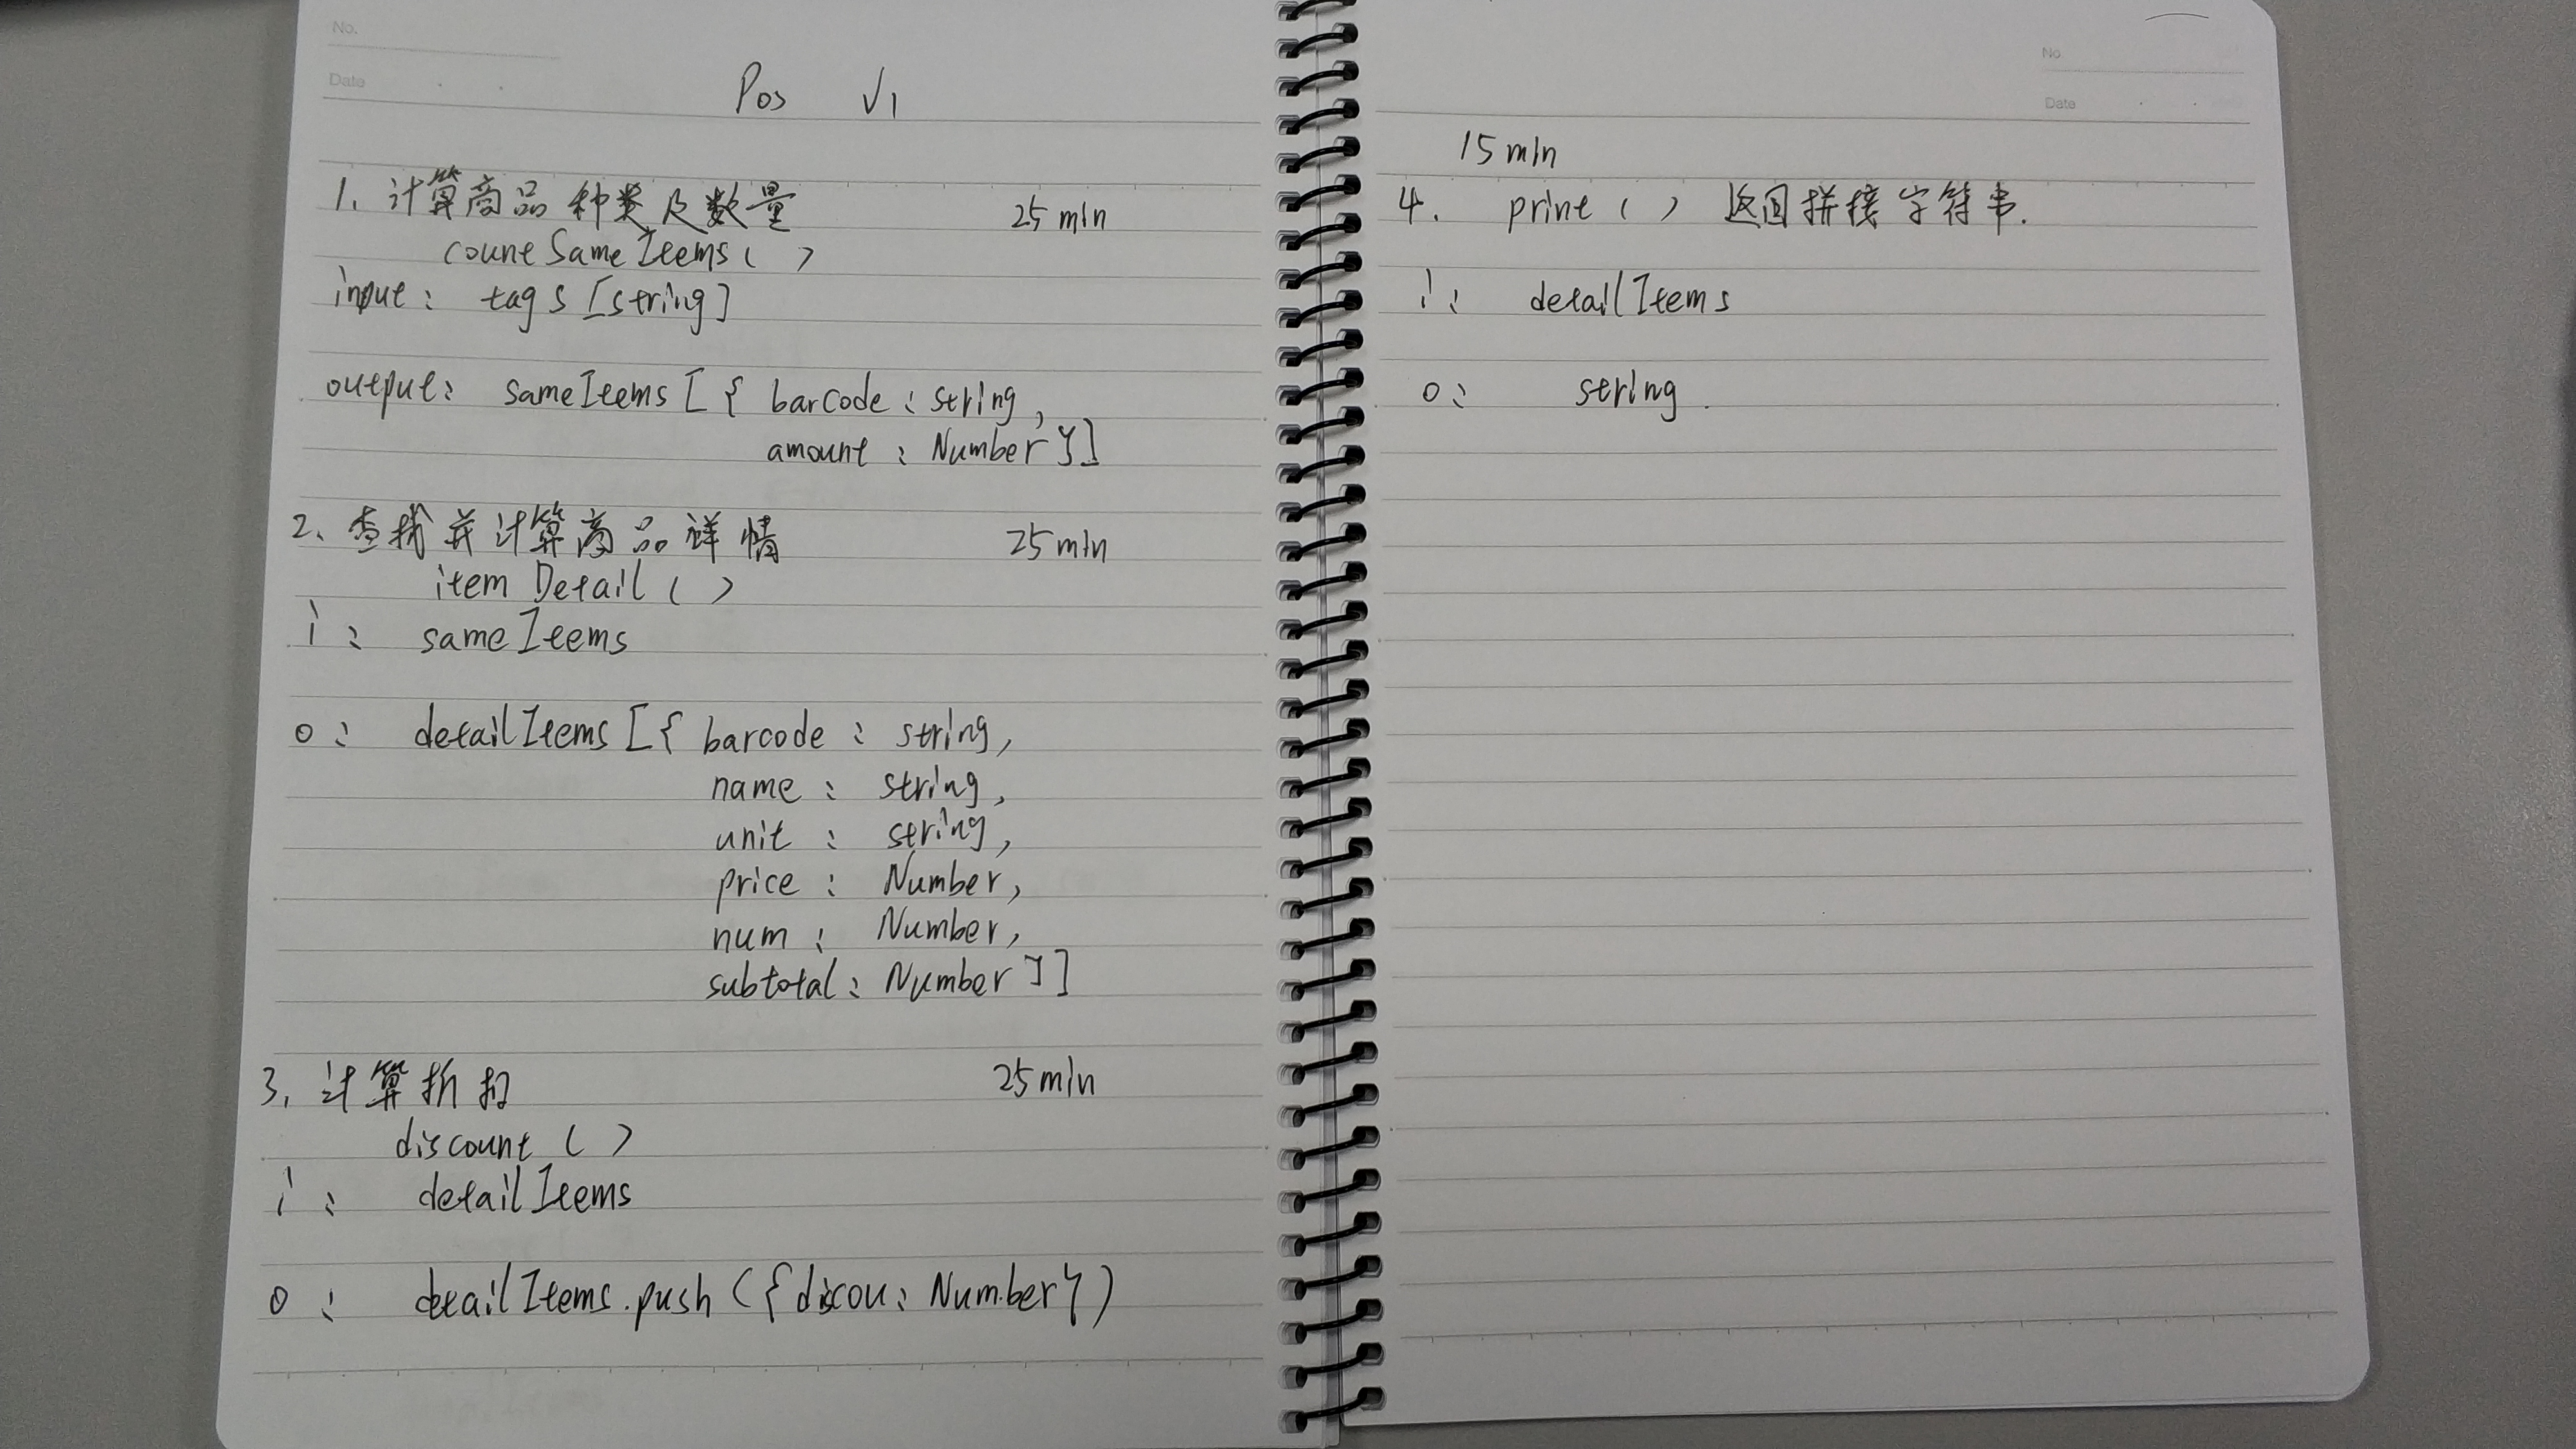 No.
Date
Pos V1
1. 计算商品种类及数量 25min
countSameItems( )
input: tags [string]
output: sameItems [ { barcode : string,
amount : Number }]
2、查找并计算商品详情 25min
item Detail ( )
i : sameItems
o : detailItems [{ barcode : string,
name : string,
unit : string,
price : Number,
num : Number,
subtotal : Number }]
3、计算折扣 25min
discount ( )
i : detailItems
o : detailItems.push ({discou: Number})
No
Date
15min
4. print ( ) 返回拼接字符串.
i : detailItems
o : string.